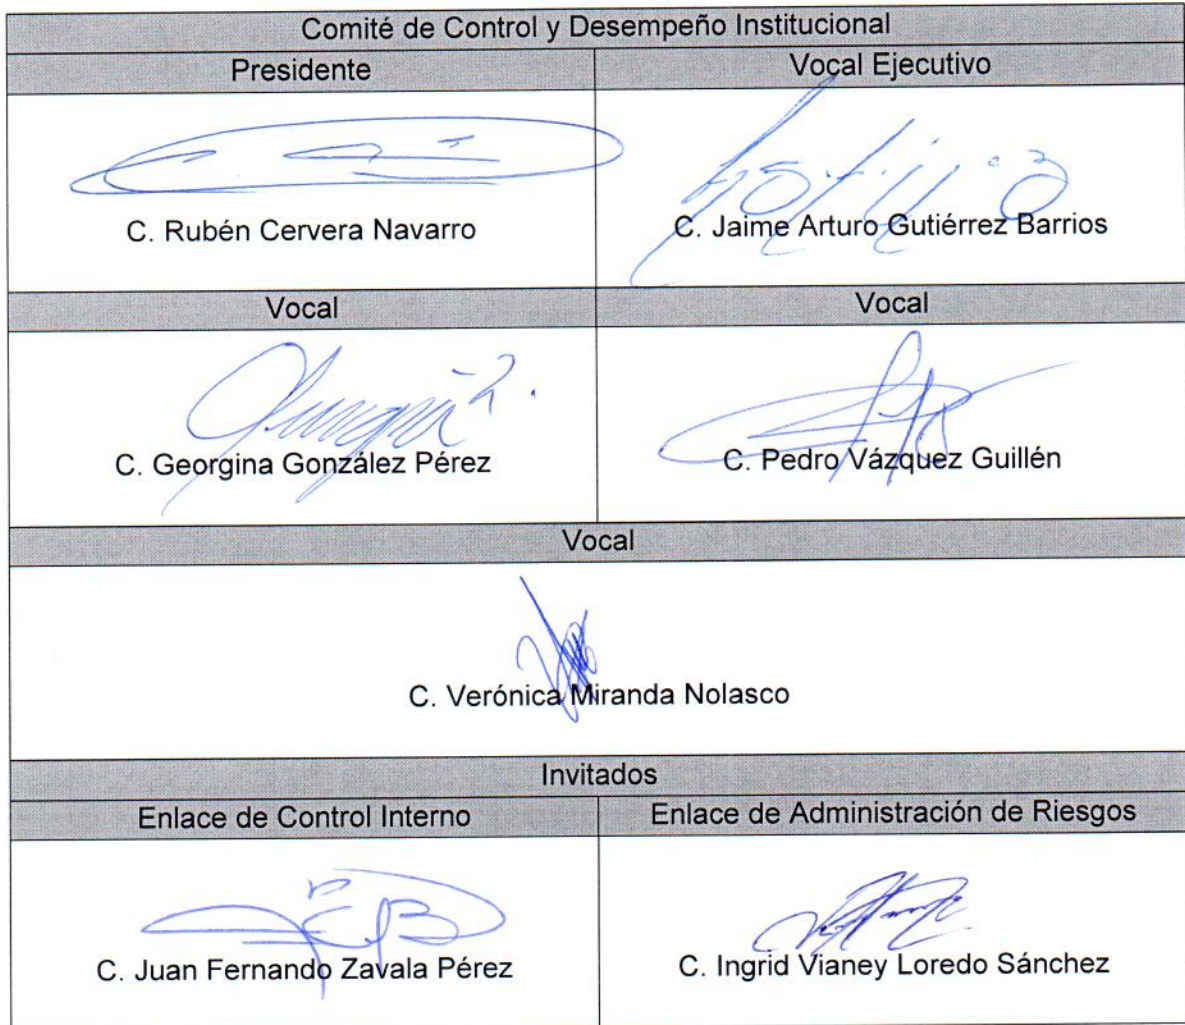 Comité de Control y Desempeño Institucional
Presidente
Vocal Ejecutivo
C. Rubén Cervera Navarro
C. Jaime Arturo Gutiérrez Barrios
Vocal
Vocal
C. Georgina González Pérez
C. Pedro Vázquez Guillén
Vocal
C. Verónica Miranda Nolasco
Invitados
Enlace de Control Interno
Enlace de Administración de Riesgos
C. Juan Fernando Zavala Pérez
C. Ingrid Vianey Loredo Sánchez